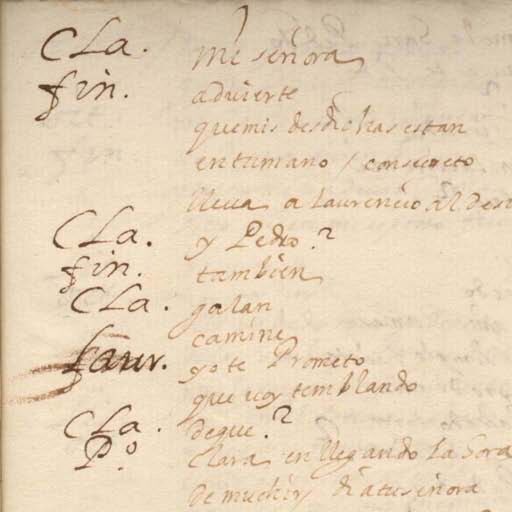 CLa. mi señora
fin. aduierte
quemis desdichas estan
entumano / consecreto
lleua a Laurencio al Des
CLa. y Pedro?
fin. tambien
CLa. galan
camine
Laur. yo te Prometo
que uoy temblando
CLa. deque?
P.º Clara en llegando La Sora
De muchir / di atuseñora